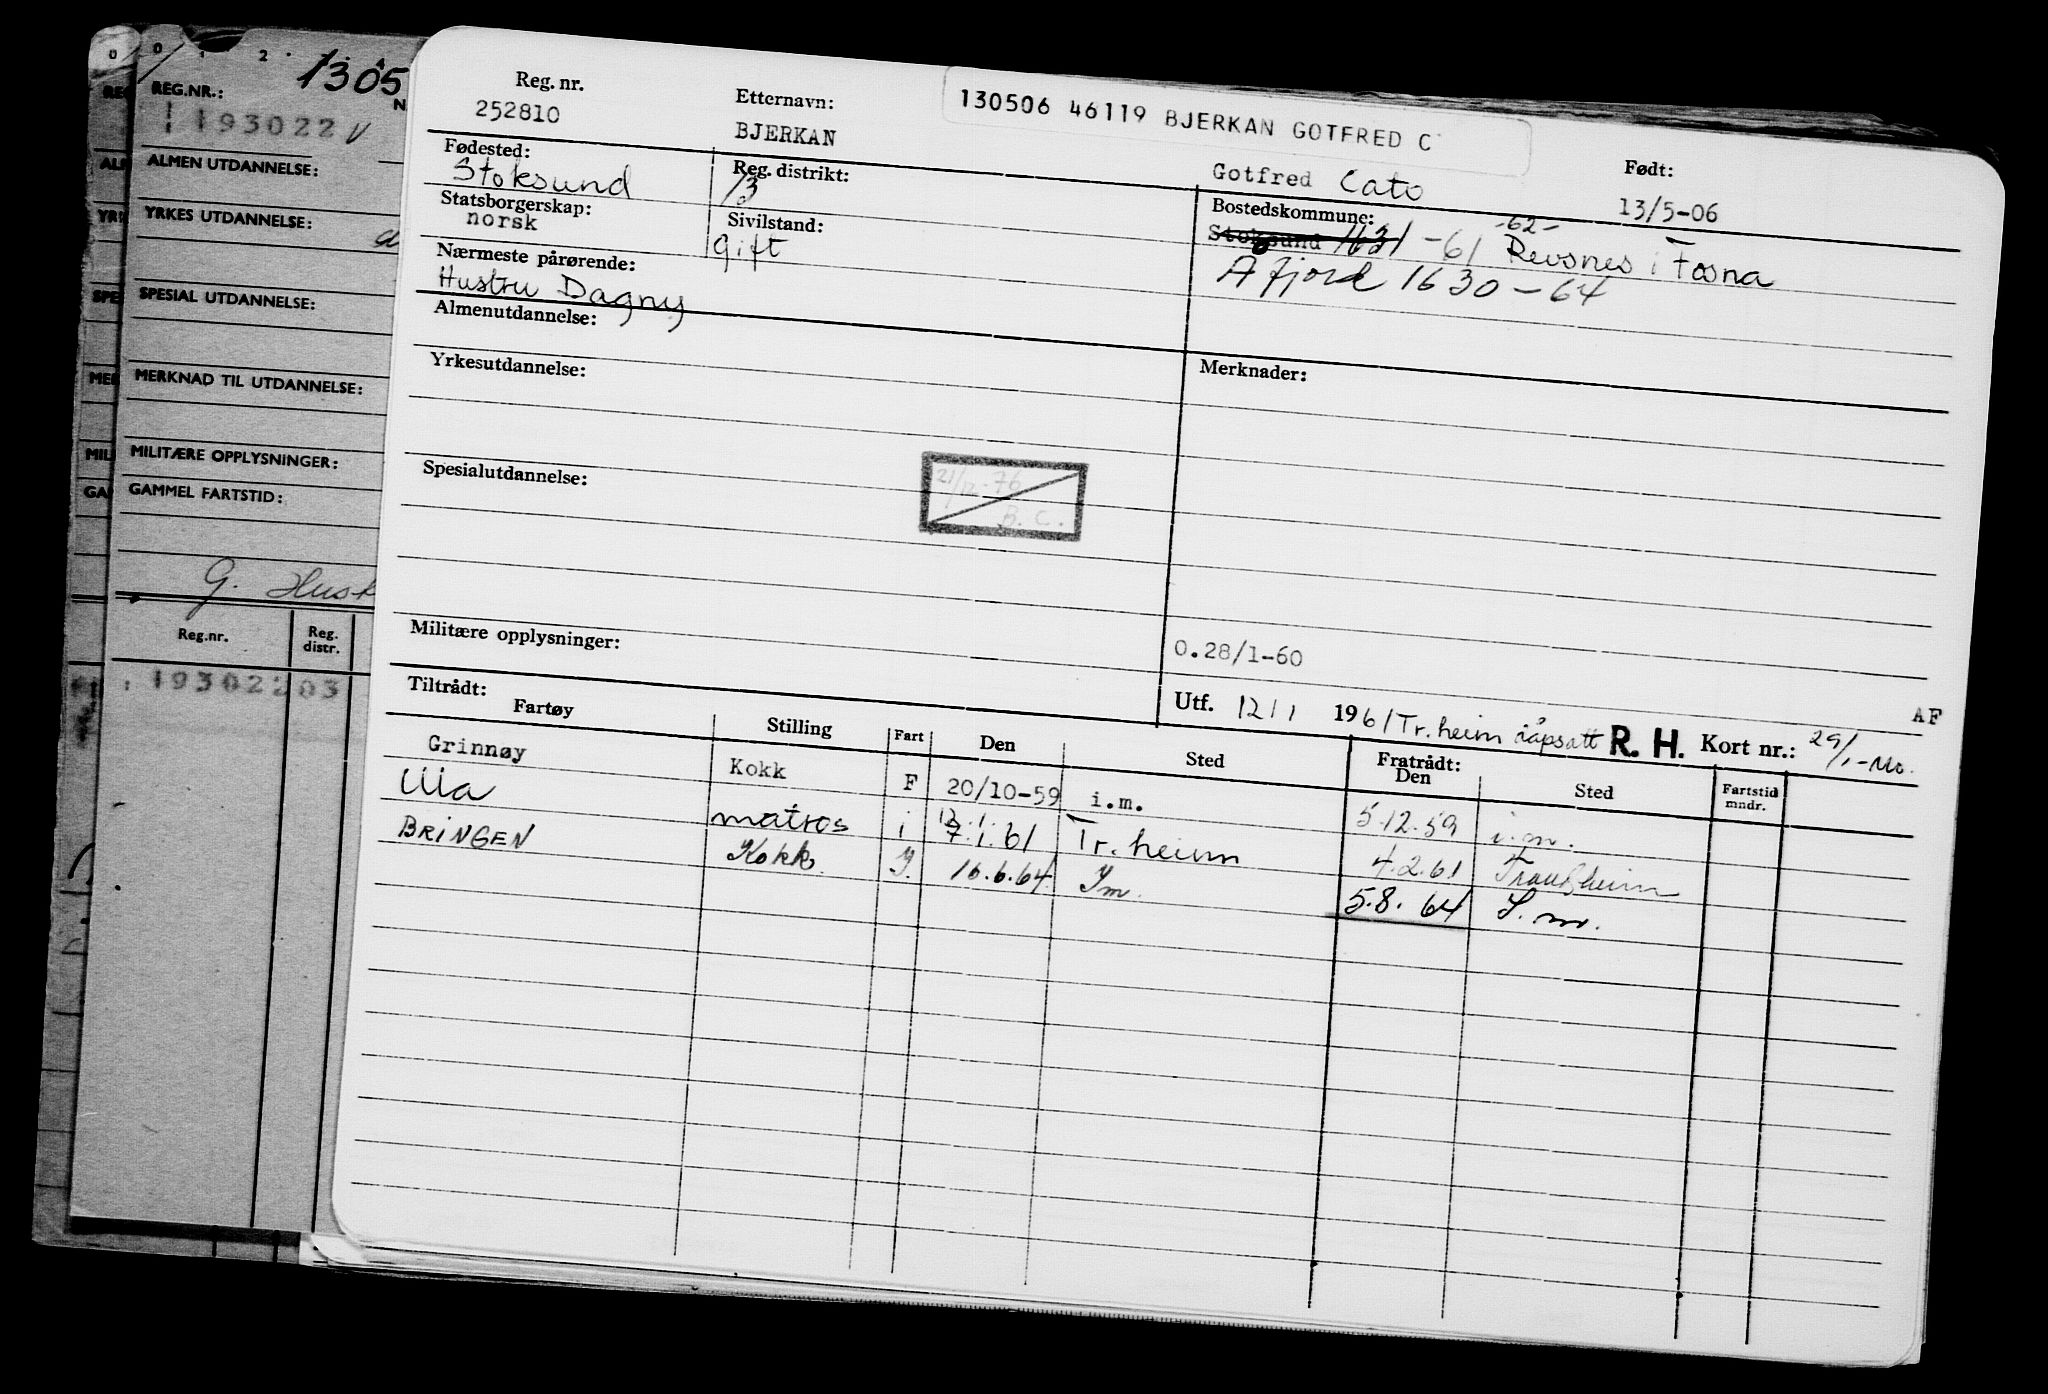 0 0 1 2
1305
REG.NR.:
193022 V
ALMEN UTDANNELSE:
YRKES UTDANNELSE:
SPESIAL UTDANNELSE:
MERKNAD TIL UTDANNELSE:
MILITÆRE OPPLYSNINGER:
GAMMEL FARTSTID:
G. Husk
Reg.nr. Reg. distr.
193022 03
Reg. nr. Etternavn: 130506 46119 BJERKAN GOTFRED C Født:
252810 BJERKAN Gotfred Cato 13/5-06
Fødested: Reg. distrikt: Bostedskommune:
Stoksund 13 Stoksund 1631 -61 -62- Revsnes i Fosna
Statsborgerskap: Sivilstand: Åfjord 1630-64
norsk gift
Nærmeste pårørende:
Hustru Dagny
Almenutdannelse:
Yrkesutdannelse: Merknader:
Spesialutdannelse: 21/12-76 B.C.
Militære opplysninger: 0.28/1-60
Utf. 12/1 1961 Tr.heim R. H. Kort nr.: AF
Tiltrådt: Fratrådt:
Fartøy Stilling Fart Den Sted Den Sted Fartstid mndr.
Grinnøy Kokk F 20/10-59 i.m. 5.12.59 i.m.
Ula matros i 12.1. 7.1.61 Tr.heim 4.2.61 Trondheim
BRINGEN Kokk I. 16.6.64 Im. 5.8.64 I.m.